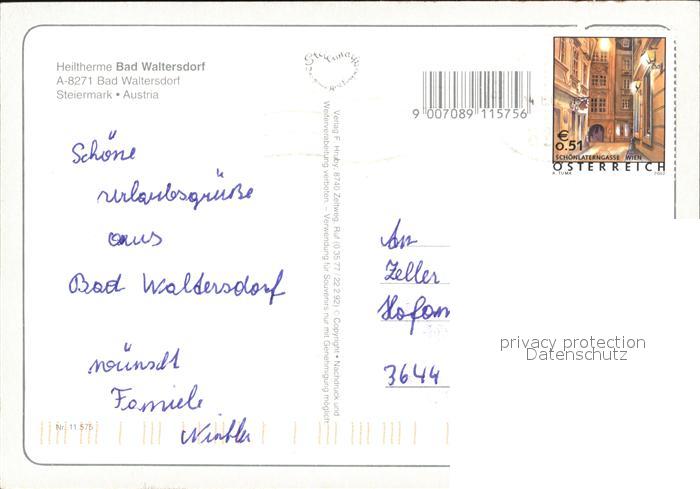 Heiltherme Bad Waltersdorf
A-8271 Bad Waltersdorf
Steiermark • Austria
9 007089 115756
€
0.51
SCHÖNLATERNGASSE WIEN
ÖSTERREICH
A. TUMA 2002
Schöne
Urlaubsgrüße
aus
Bad Waltersdorf
wünscht
Familie
Winkler
Nr. 11 575
Verlag F. Hruby, 8740 Zeltweg, Ruf (0 35 77 / 22 2 92) © Copyright • Nachdruck und
Weiterverarbeitung verboten. – Verwendung für Souvenirs nur mit Genehmigung möglich.
An
Zeller
3644
privacy protection
Datenschutz